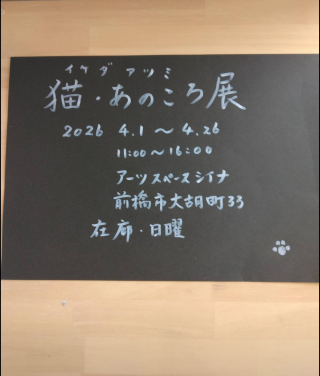 イケダアツミ
猫・あのころ展
2026 4.1～4.26
11:00～16:00
アーツスペースシイナ
前橋市大胡町33
在廊・日曜